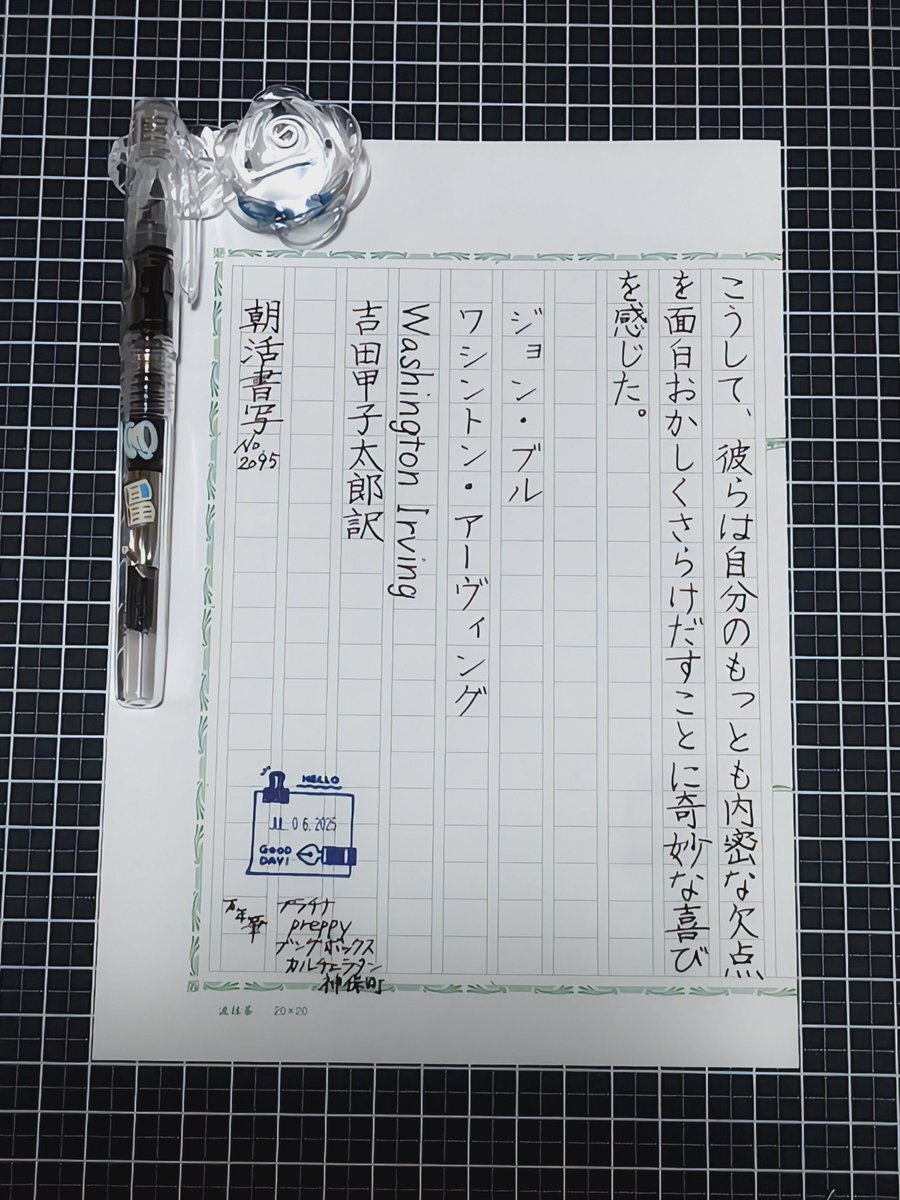 こうして、彼らは自分のもっとも内密な欠点
を面白おかしくさらけだすことに奇妙な喜び
を感じた。
ジョン・ブル
ワシントン・アーヴィング
Washington Irving
吉田甲子太郎訳
朝活書写
No.
2095
HELLO
JUL 06.2025
GOOD
DAY!
万年筆
プラチナ
preppy
ブングボックス
カルチェラタン
神保町
20×20